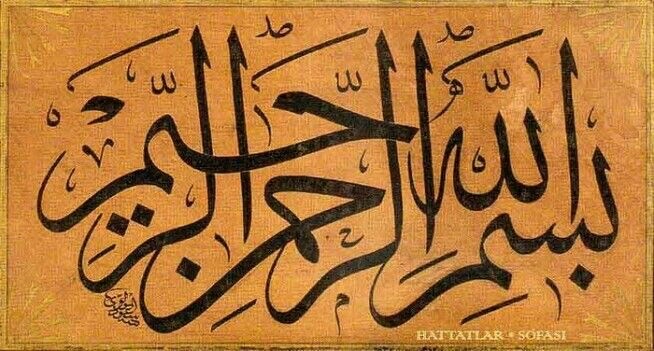 بسم الله الرحمن الرحيم
HATTATLAR • SOFASI